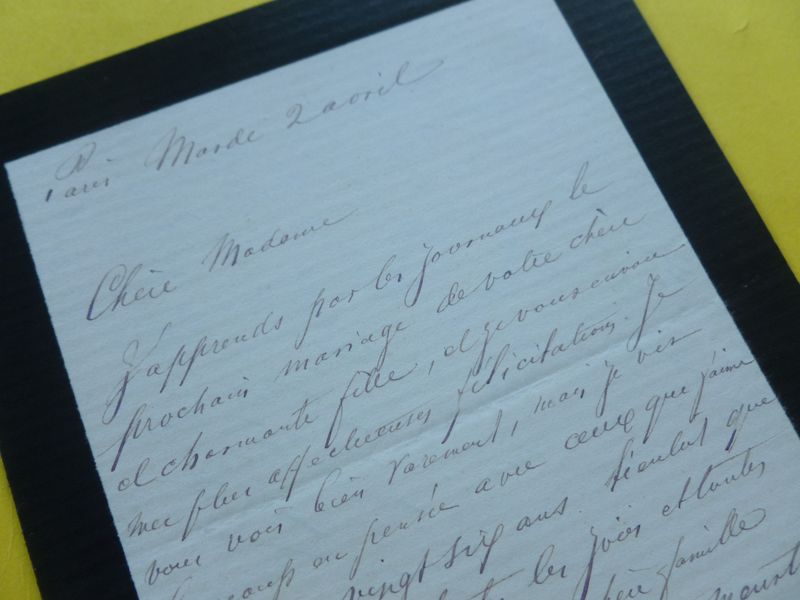 Paris Mardi 2 avril
Chère Madame
J'apprends par les journaux le
prochain mariage de votre chère
et charmante fille, et je vous envoie
mes plus affectueuses félicitations. Je
vous vois bien rarement, mais je vis
en pensée avec ceux que j'aime
vingt six ans. que
les joies et toutes
famille